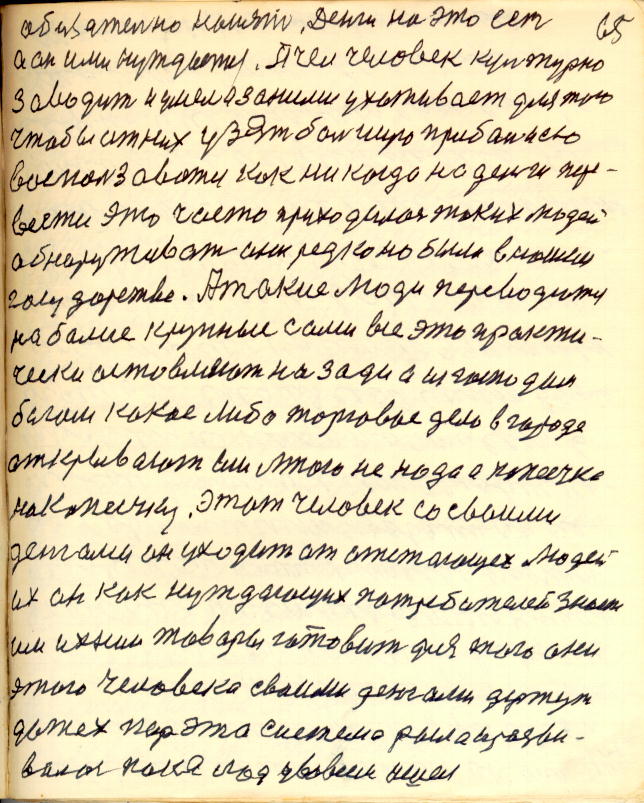 65
обязателно нанято. Денги на это есть
а он ими нуждаетца. Пчел человек културно
заводит и умело за ними ухаживает для того
чтобы от них узят болшую прибыл и ею
воспользоватся как никогда на денги пере-
вести это часто приходилос таких людей
обнаруживат они редко но были в нашем
государстве. А такие люди переводитца
на более крупные сами все это практи-
чески оставляют на зади а их господам
богом какое либо торговое дело в городе
открывают им этого не нада а копеечка
на копеечку. Этот человек со своими
денгами он уходит от отстающих людей
их он как нуждающих потребителей знает
им ихние товары готовит для того они
этого человека своими денгами держут
до тех пор эта система рыла и разви-
валос пока